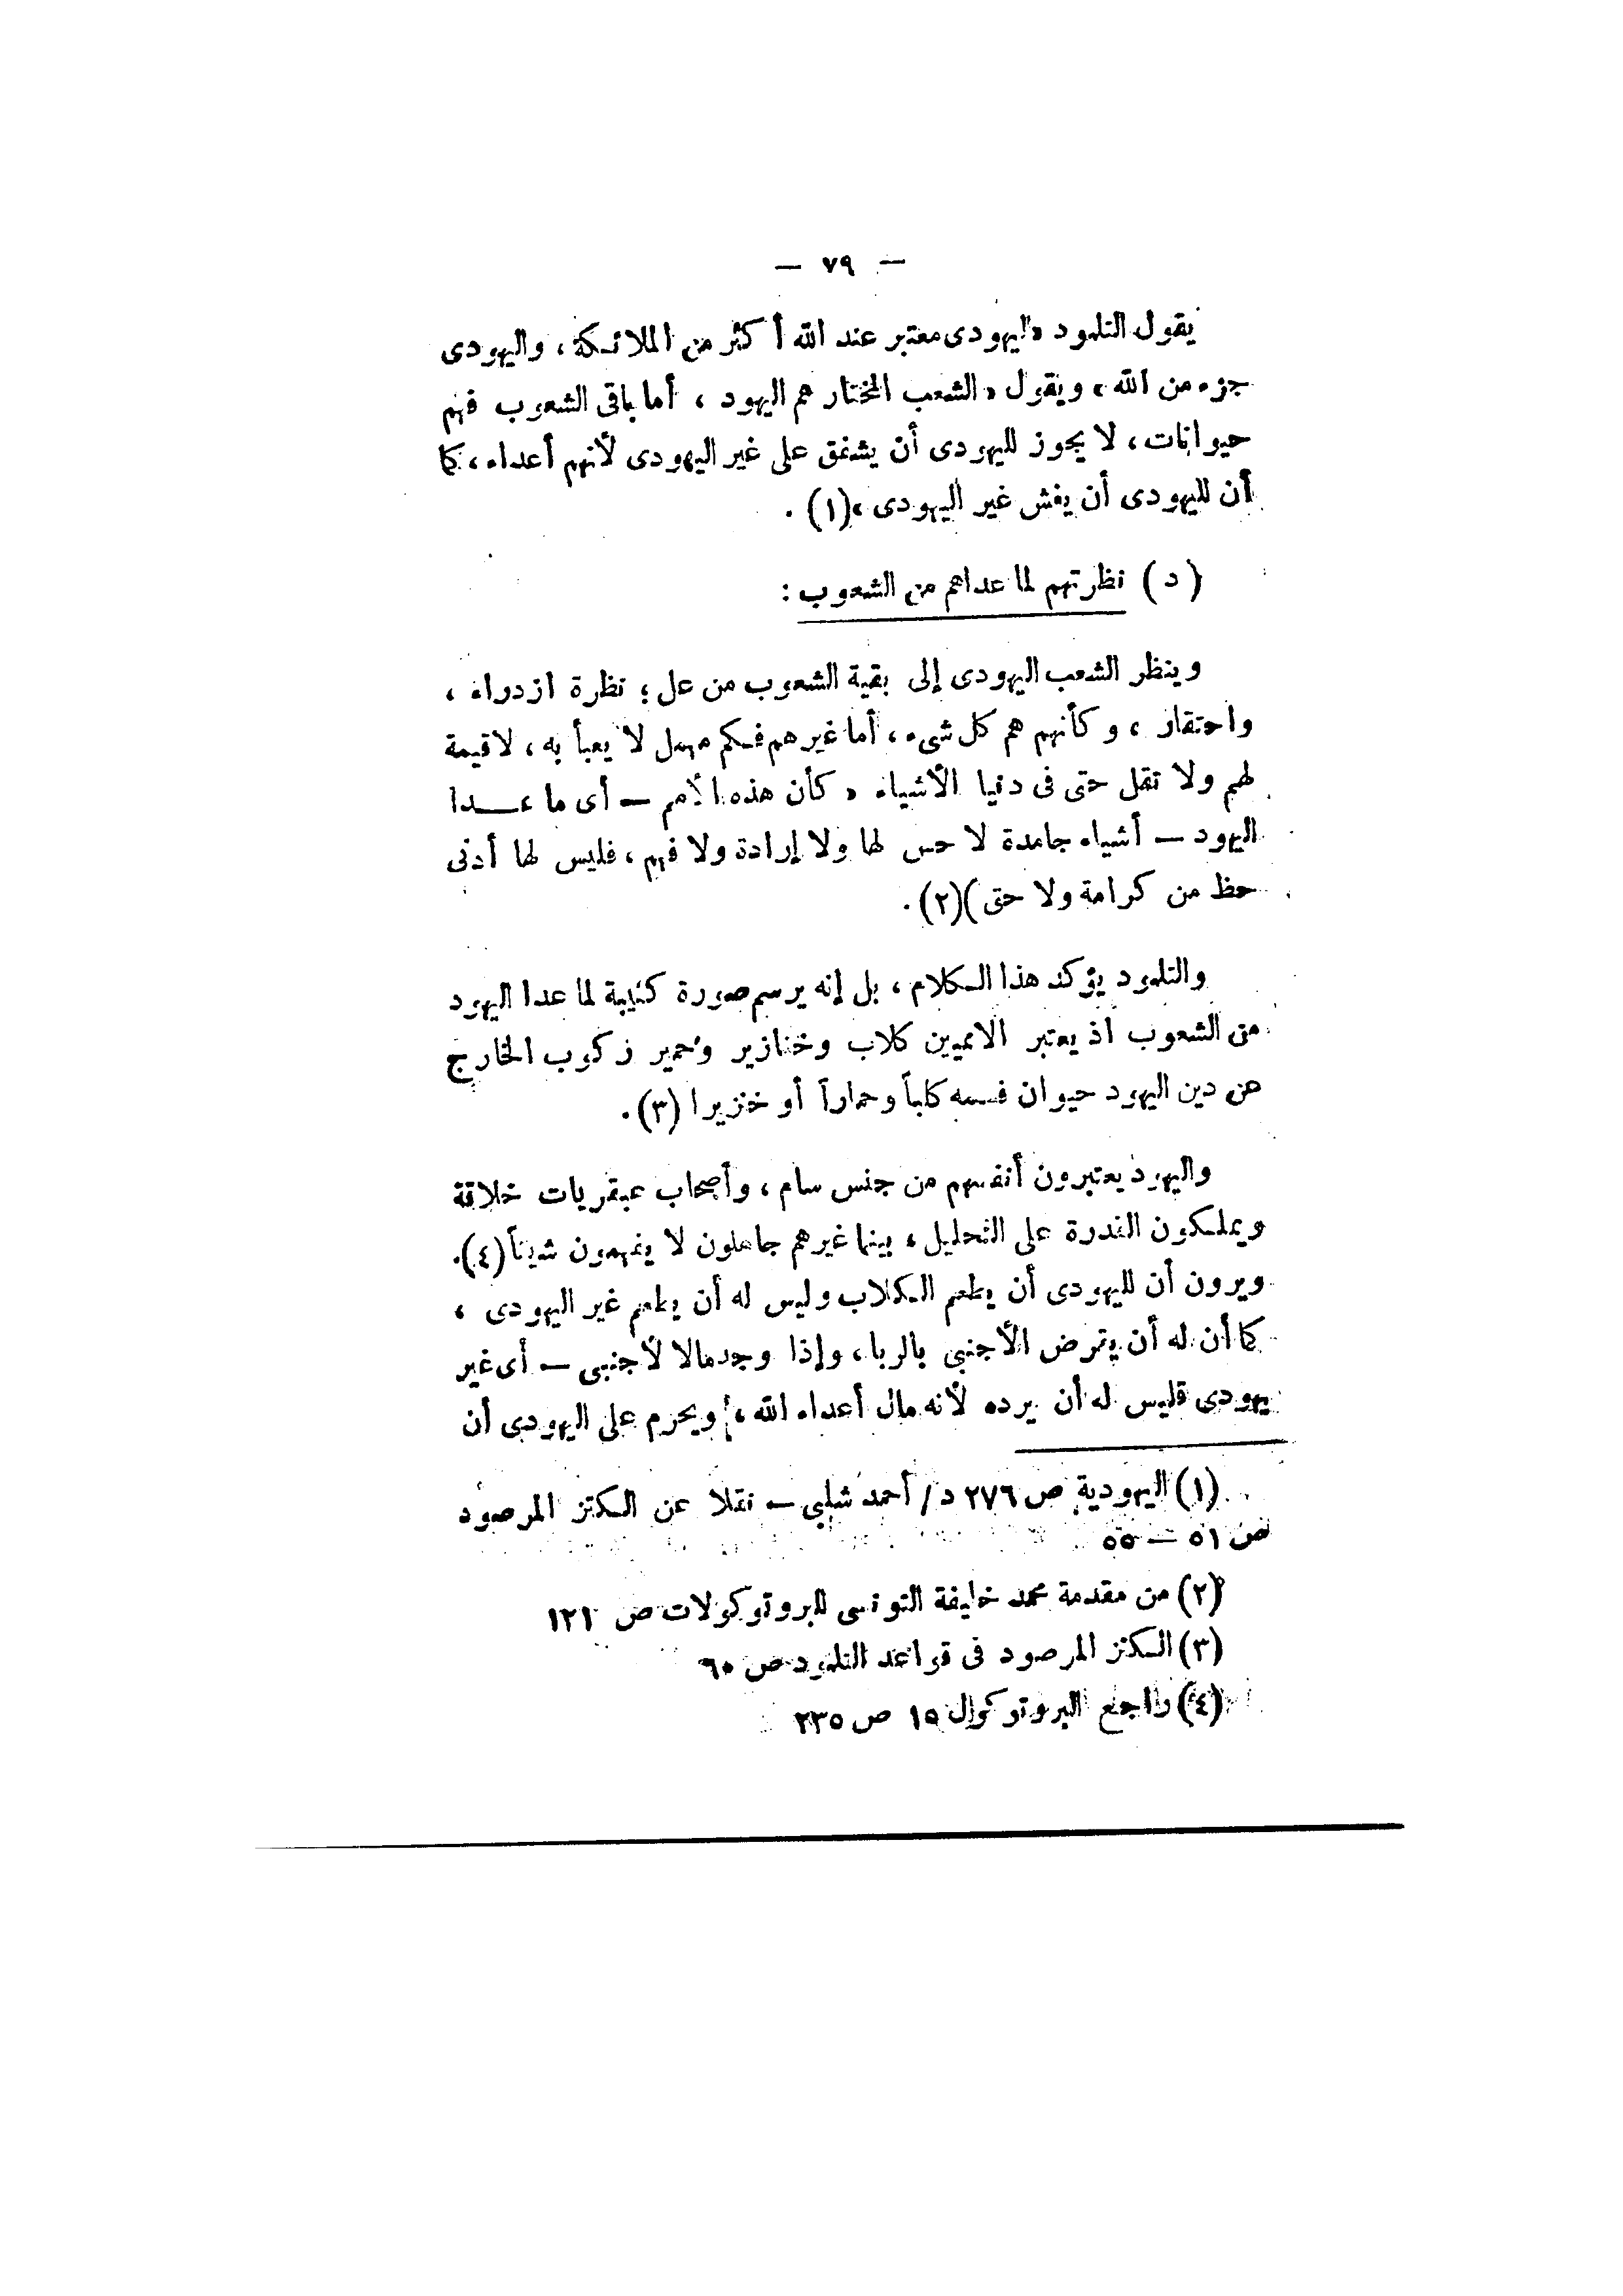 — ٧٩ —
يقول التلمود «اليهودى معتبر عند الله أكثر من الملائكة، واليهودى
جزء من الله» ويقول «الشعب المختار هم اليهود ، أما باقى الشعوب فهم
حيوانات، لا يجوز لليهودى أن يشفق على غير اليهودى لأنهم أعداء، كما
أن لليهودى أن يغش غير اليهودى»(١) .
( د ) نظرتهم لما عداهم من الشعوب :
وينظر الشعب اليهودى إلى بقية الشعوب من عل ؛ نظرة ازدراء ،
واحتقار ، وكأنهم هم كل شىء ، أما غيرهم فكم مهمل لا يعبأ به ، لا قيمة
لهم ولا ثقل حتى فى دنيا الأشياء « كأن هذه الأمم — أى ما عـــدا
اليهود — أشياء جامدة لا حس لها ولا إرادة ولا فهم ، فليس لها أدنى
حظ من كرامة ولا حتى )(٢).
والتلمود يؤكد هذا الكلام ، بل إنه يرسم صورة كئيبة لما عدا اليهود
من الشعوب اذ يعتبر الامميين كلاب وخنازير وحمير زكوب الخارج
عن دين اليهود حيوان فسمه كلباً وحماراً أو خنزيرا (٣).
واليهود يعتبرون أنفسهم من جنس سام ، وأصحاب عبقريات خلاقة
ويملكون القدرة على التحليل ، بينما غيرهم جاهلون لا يفهمون شيئاً (٤).
ويرون أن لليهودى أن يطعم الكلاب وليس له أن يطعم غير اليهودى ،
كما أن له أن يقرض الأجنبى بالربا ، وإذا وجد مالا لأجنبى — أى غير
يهودى فليس له أن يرده لأنه مال أعداء الله ، ويحرم على اليهودى أن
(١) اليهودية ص ٢٧٦ د/ أحمد شلبى — نقلا عن الكنز المرصود
ص ٥١ — ٥٥
(٢) من مقدمة محمد خليفة التونسى للبروتوكولات ص ١٢١
(٣) الكنز المرصود فى قواعد التلمود ص ٦٠
(٤) راجع البروتوكول ١٥ ص ٢٣٥